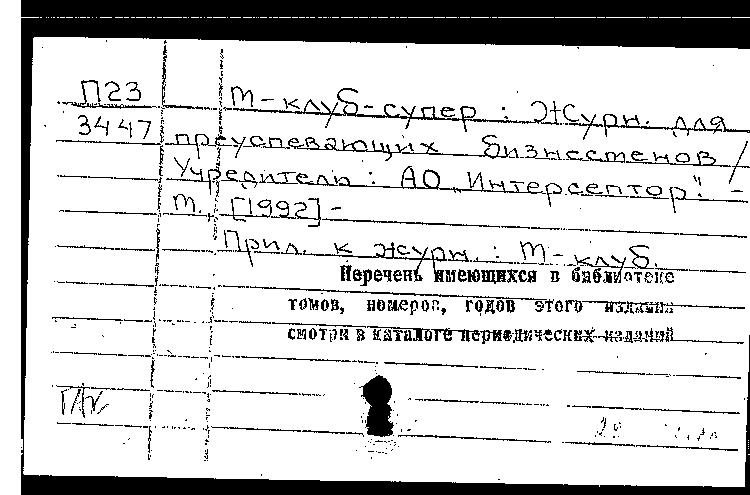 П23
3447
М-клуб-супер : Журн. для
преуспевающих бизнесменов /
Учредитель : АО „Интерсептор“. -
М., [1992] -
Прил. к журн. : М-клуб.
Перечень имеющихся в библиотеке
томов, номеров, годов этого издания
смотри в каталоге периодических изданий